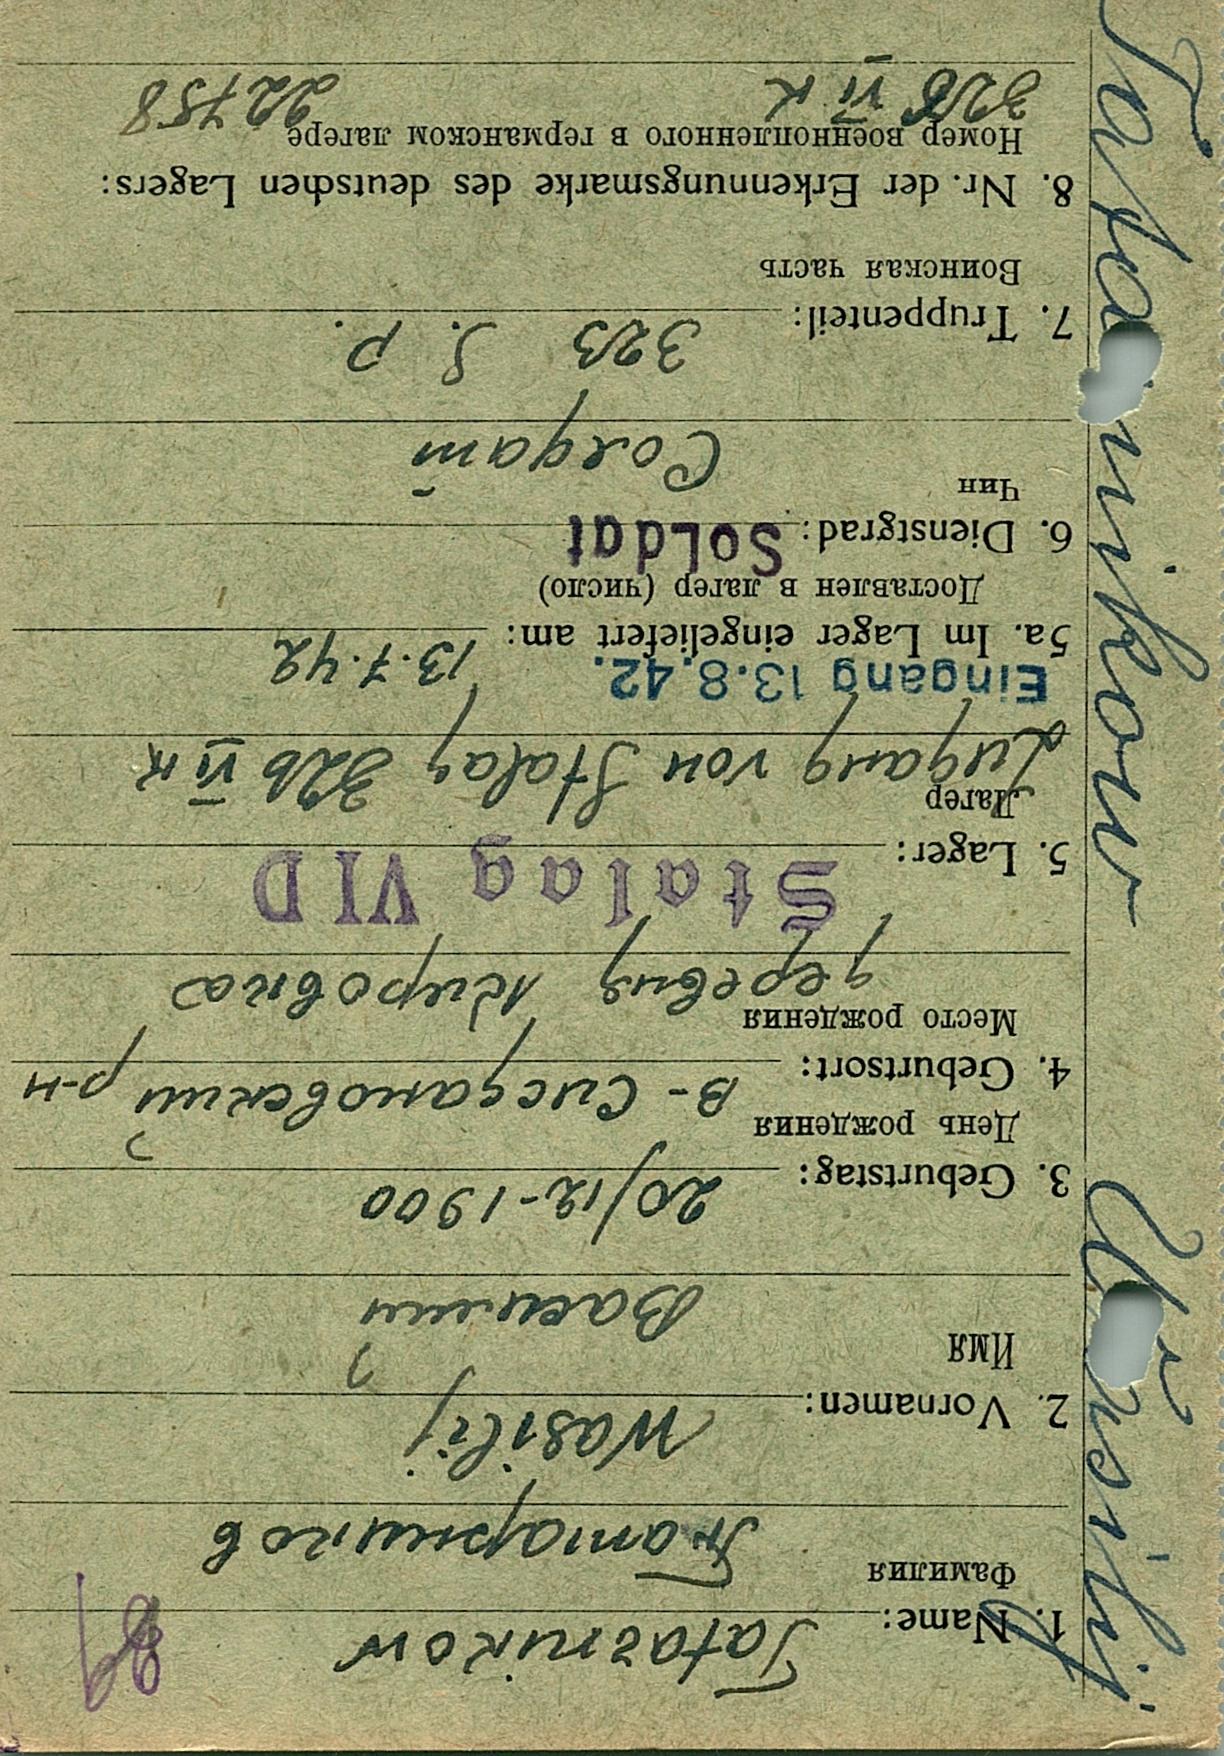 Tatarnikow Wasilij
81
1. Name: Tatarnikow
Фамилия
Татарников
2. Vornamen: Wasilij
Имя
Василий
3. Geburtstag: 20/12-1900
День рождения
4. Geburtsort: р-н
Место рождения
деревня Кировка
5. Lager: Stalag VID
Лагер
Zugang von Stalag 326 VI K
Eingang 13.8.42.
5a. Im Lager eingeliefert am: 13.7.42
Доставлен в лагер (число)
6. Dienstgrad: Soldat
Чин
Солдат
7. Truppenteil: 323 S. P.
Воинская часть
8. Nr. der Erkennungsmarke des deutschen Lagers:
Номер военнопленного в германском лагере
326 VI K 22758